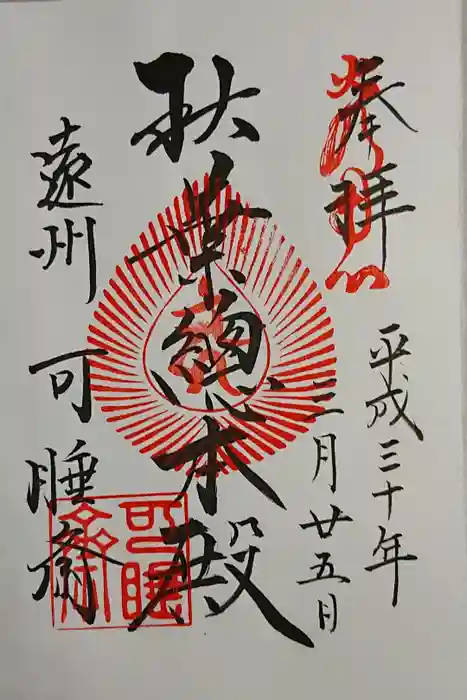 奉拝
平成三十年
三月廿五日
秋葉總本殿
遠州 可睡斎
可睡